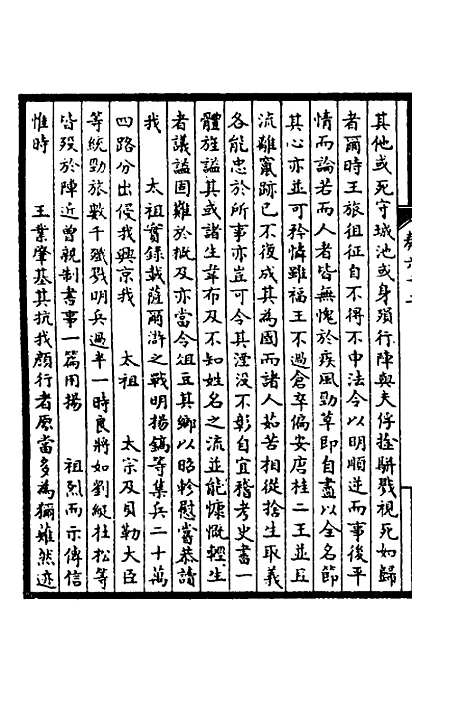 其他或死守城池或身殞行陣與夫俘擒駢戮視死如歸
者爾時王旅徂征自不得不中法令以明順逆而事後平
情而論若而人者皆無愧於疾風勁草即自盡以全名節
其心亦並可矜憐雖福王不過倉卒偏安唐桂二王並且
流離竄跡已不復成其為國而諸人茹苦相從捨生取義
各能忠於所事亦豈可令其湮没不彰自宜稽考史書一
體旌謚其或諸生韋布及不知姓名之流並能慷慨輕生
者議謚固難於概及亦當令俎豆其鄉以昭軫慰當恭讀
我　太祖實錄載薩爾滸之戰明楊鎬等集兵二十萬
四路分出侵我興京我　太祖　太宗及貝勒大臣
等統勁旅數千殲戮明兵過半一時良將如劉綎杜松等
皆歿於陣近曾親制書事一篇用揚　祖烈而示傳信
惟時　王業肇基其抗我顏行者原當多為獮薙然迹